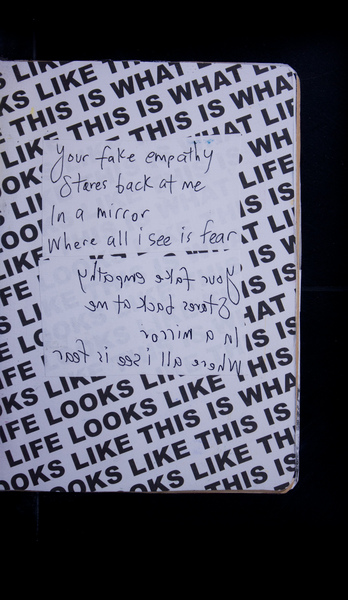 THIS IS WHAT LIFE LOOKS LIKE
Your fake empathy
Stares back at me
In a mirror
Where all i see is fear
Your fake empathy
Stares back at me
In a mirror
Where all i see is fear
LIFE LOOKS LIKE THIS IS WHA
LIFE LOOKS LIKE THIS IS
LOOKS LIKE THIS IS